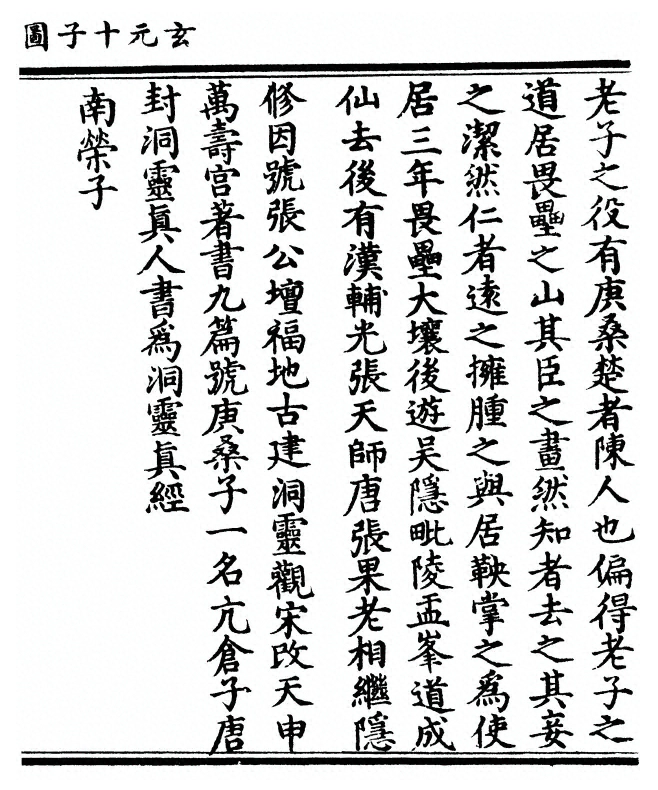 玄元十子圖
老子之役有庚桑楚者陳人也偏得老子之
道居畏壘之山其臣之畫然知者去之其妾
之潔然仁者遠之擁腫之與居鞅掌之爲使
居三年畏壘大壤後遊吴隱毗陵盂峯道成
仙去後有漢輔光張天師唐張果老相繼隱
修因號張公壇福地古建洞靈觀宋改天申
萬壽宫著書九篇號庚桑子一名亢倉子唐
封洞靈眞人書爲洞靈眞經
南榮子